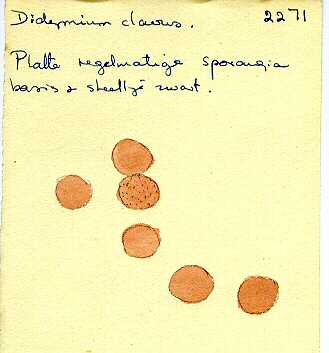 Didymium clavus. 2271
Platte regelmatige sporangia
basis & steeltje zwart.